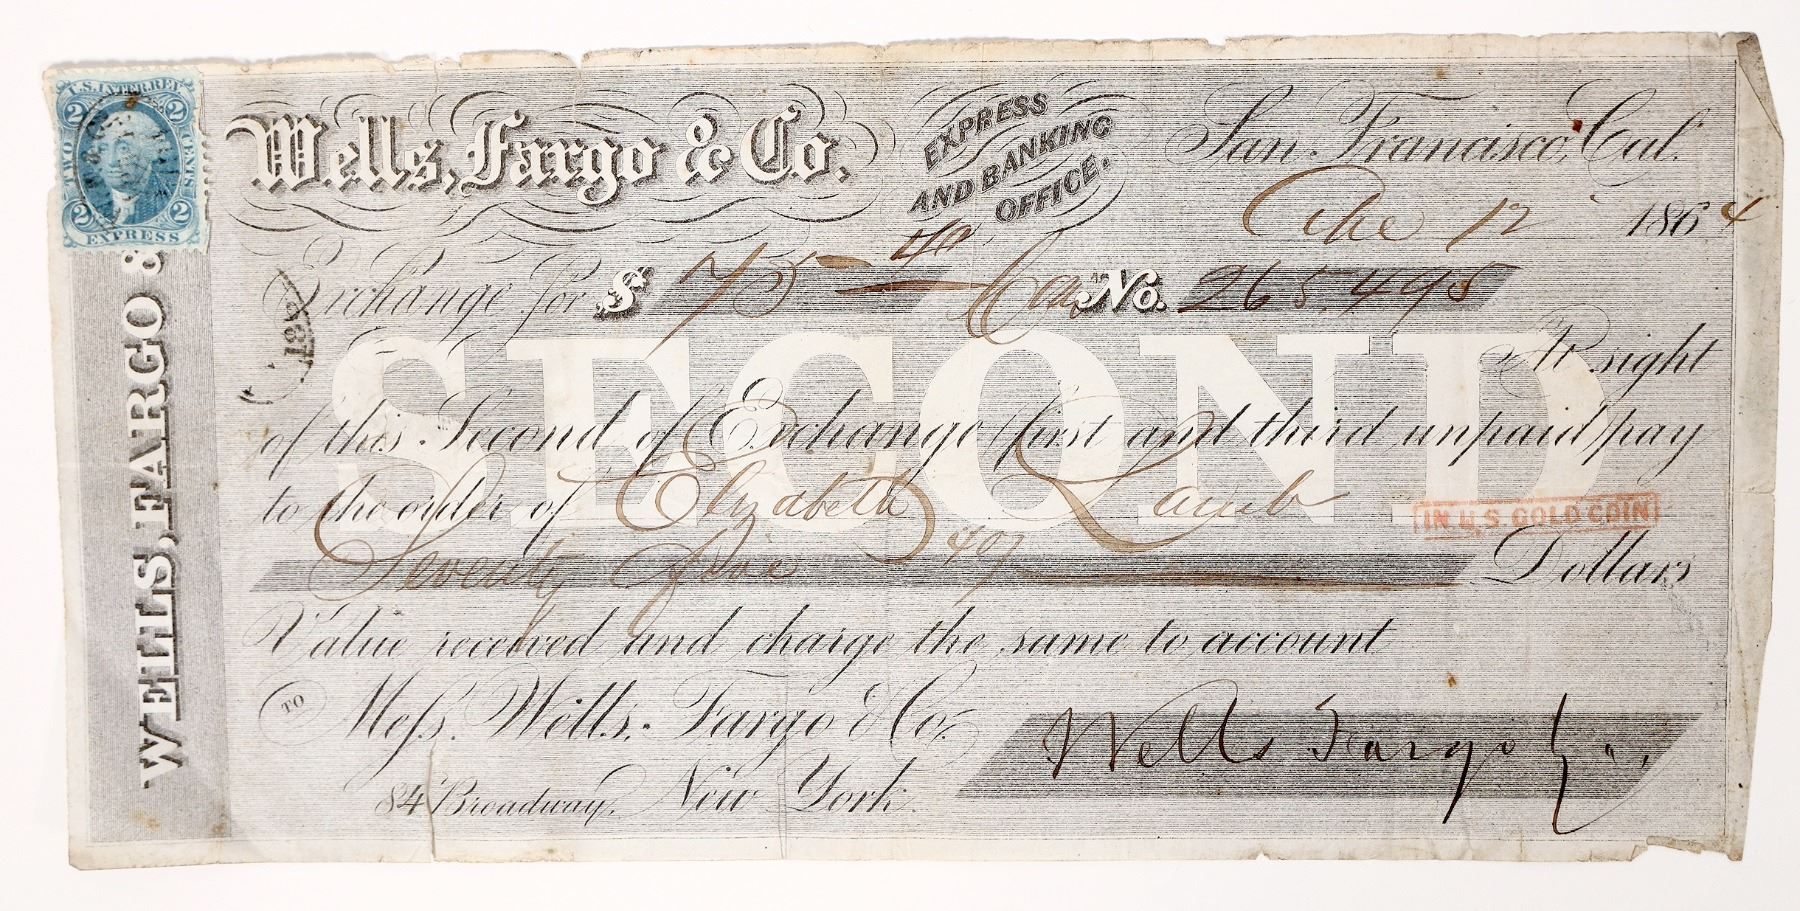 U.S. INTER. REV.
2 2
TWO CENTS
2 2
EXPRESS
WELLS, FARGO &
Wells, Fargo & Co.
EXPRESS
AND BANKING
OFFICE.
San Francisco, Cal.
12 1864
Exchange for $ 75 40 No. 265.495
SECOND
At sight
of this Second of Exchange (first and third unpaid) pay
to the order of Elizabeth Lamb
IN U.S GOLD COIN
Seventy five 40/ Dollars
Value received and charge the same to account
TO Mess. Wells, Fargo & Co.
84 Broadway, New York.
Wells Fargo Co.